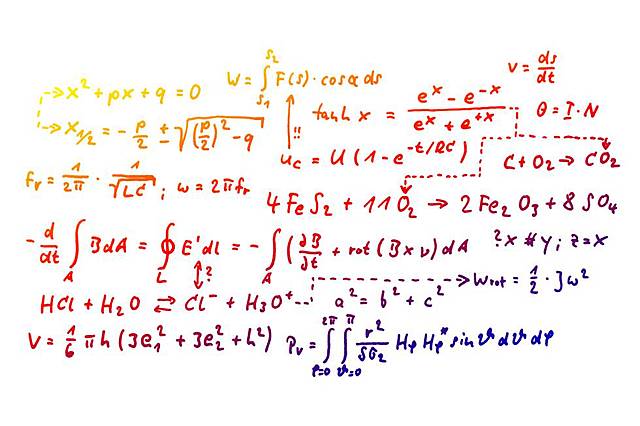 W = ∫_{S1}^{S2} F(s) · cosα ds
v = ds/dt
→ x² + px + q = 0
tanh x = (e^x − e^{−x})/(e^x + e^{+x})
θ = I · N
→ x_{1/2} = − p/2 ± √((p/2)² − q)
!!
u_C = U (1 − e^{−t/RC})
C + O₂ → CO₂
f_r = 1/2π · 1/√LC ; ω = 2πf_r
4 FeS₂ + 11 O₂ → 2 Fe₂O₃ + 8 SO₄
− d/dt ∫_A B dA = ∮_L E' dl = − ∫_A (∂B/∂t + rot (B × v) dA
? x # y ; z = x
?
HCl + H₂O ⇄ Cl⁻ + H₃O⁺
a² = b² + c²
→ W_rot = 1/2 · J ω²
V = 1/6 π h (3e₁² + 3e₂² + h²)
P_v = ∫_{φ=0}^{2π} ∫_{ϑ=0}^{π} r²/SG₂ H_φ H_φ* sin ϑ dϑ dφ